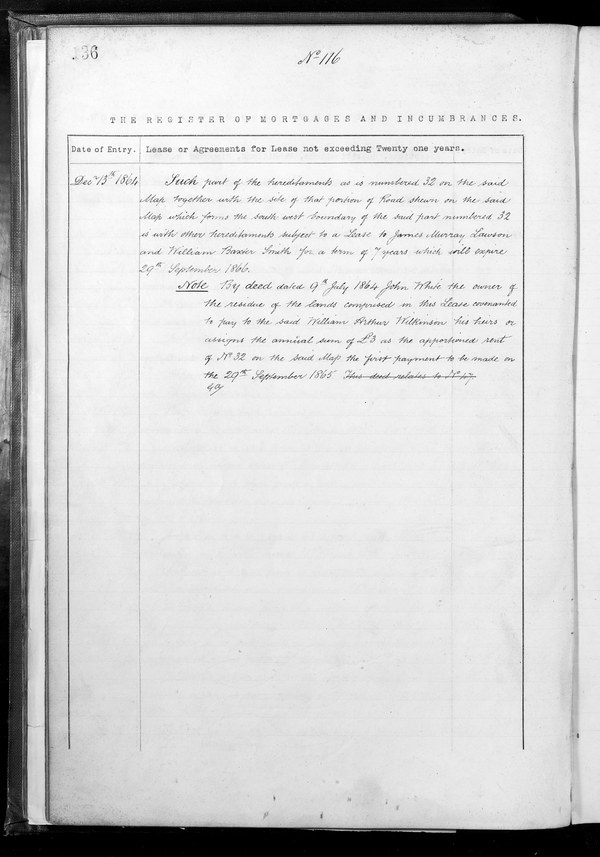 136
No 116
THE REGISTER OF MORTGAGES AND INCUMBRANCES.
Date of Entry. Lease or Agreements for Lease not exceeding Twenty one years.
Decr 13th 1864 Such part of the hereditaments as is numbered 32 on the said
Map together with the site of that portion of Road shewn on the said
Map which forms the south west boundary of the said part numbered 32
is with other hereditaments subject to a Lease to James Murray Lawson
and William Baxter Smith for a term of 7 years which will expire
29th September 1866.
Note By deed dated 9th July 1864 John White the owner of
the residue of the lands comprised in this Lease covenanted
to pay to the said William Arthur Wilkinson his heirs or
assigns the annual sum of £3 as the apportioned rent
of No 32 on the said Map the first payment to be made on
the 29th September 1865 This deed relates to No 47.